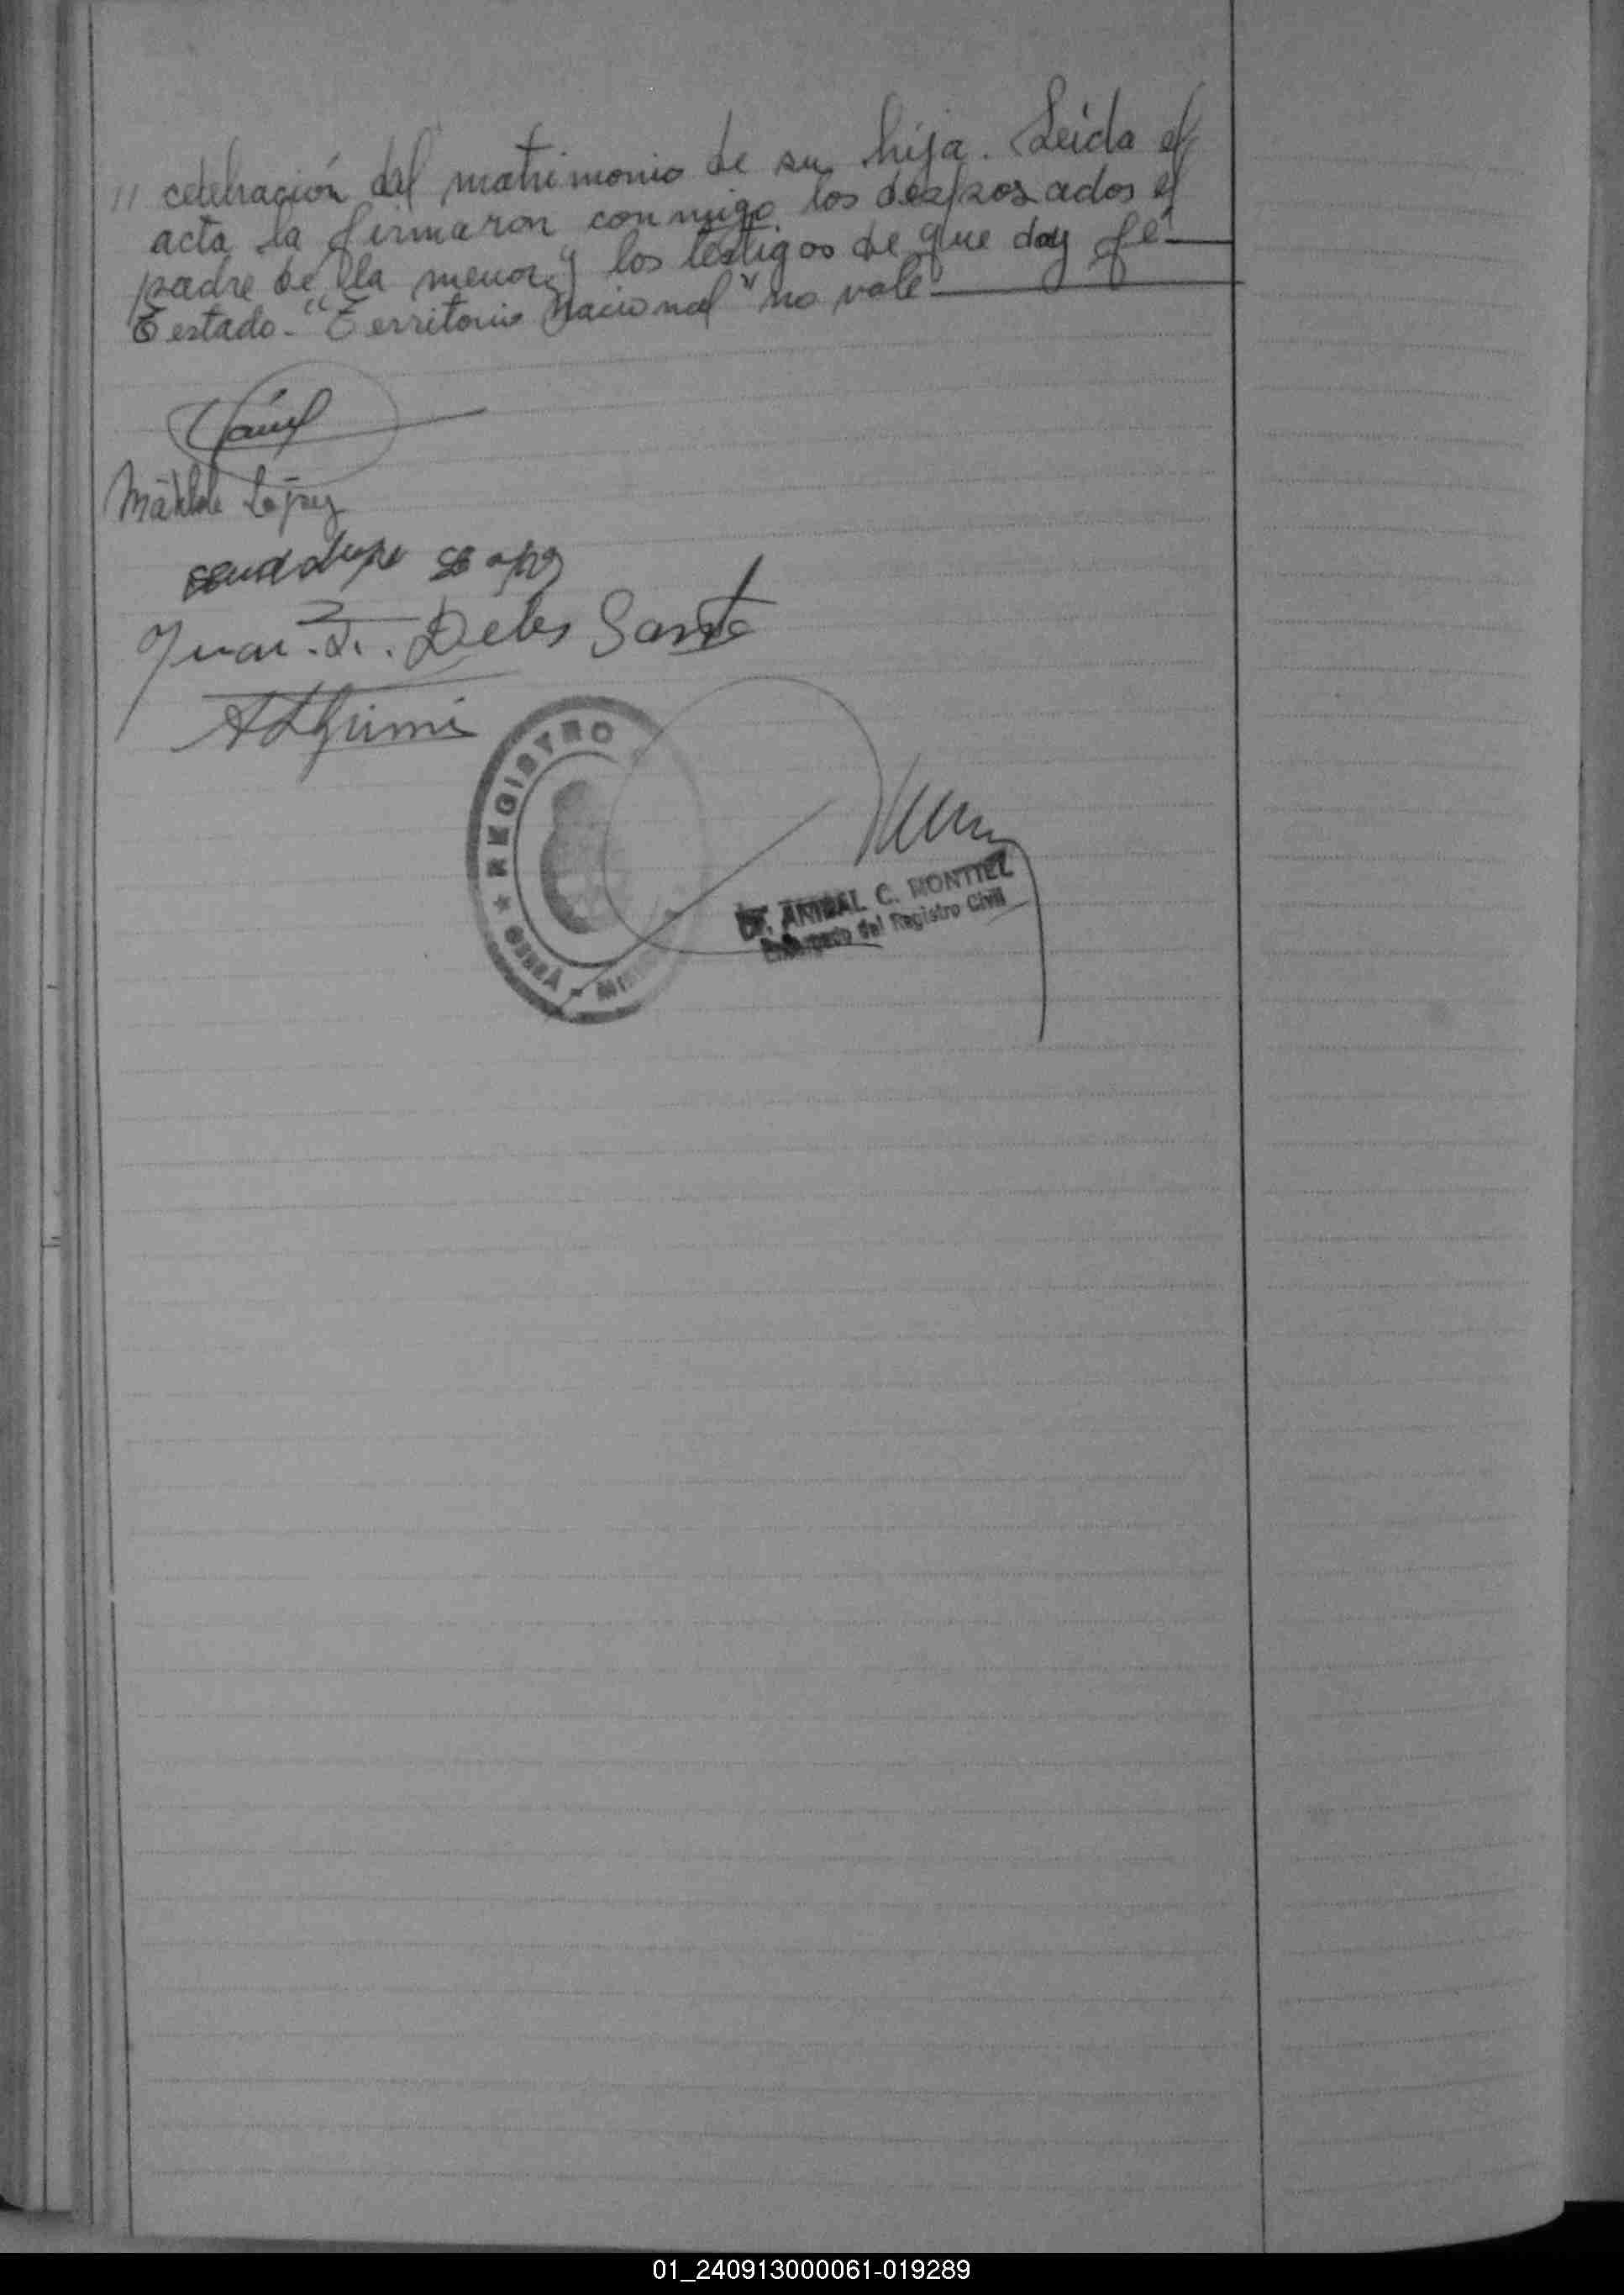 // celebración del matrimonio de su hija. Leida el
acta la firmaron conmigo los desposados el
padre de la menor y los testigos de que doy fé
Testado - "Territorio Nacional" no vale
Matilde López
Guadalupe Lopez
Juan. J. Delos Santo
REGISTRO
DR. ANIBAL C. MONTIEL
Encargado del Registro Civil
01_240913000061-019289